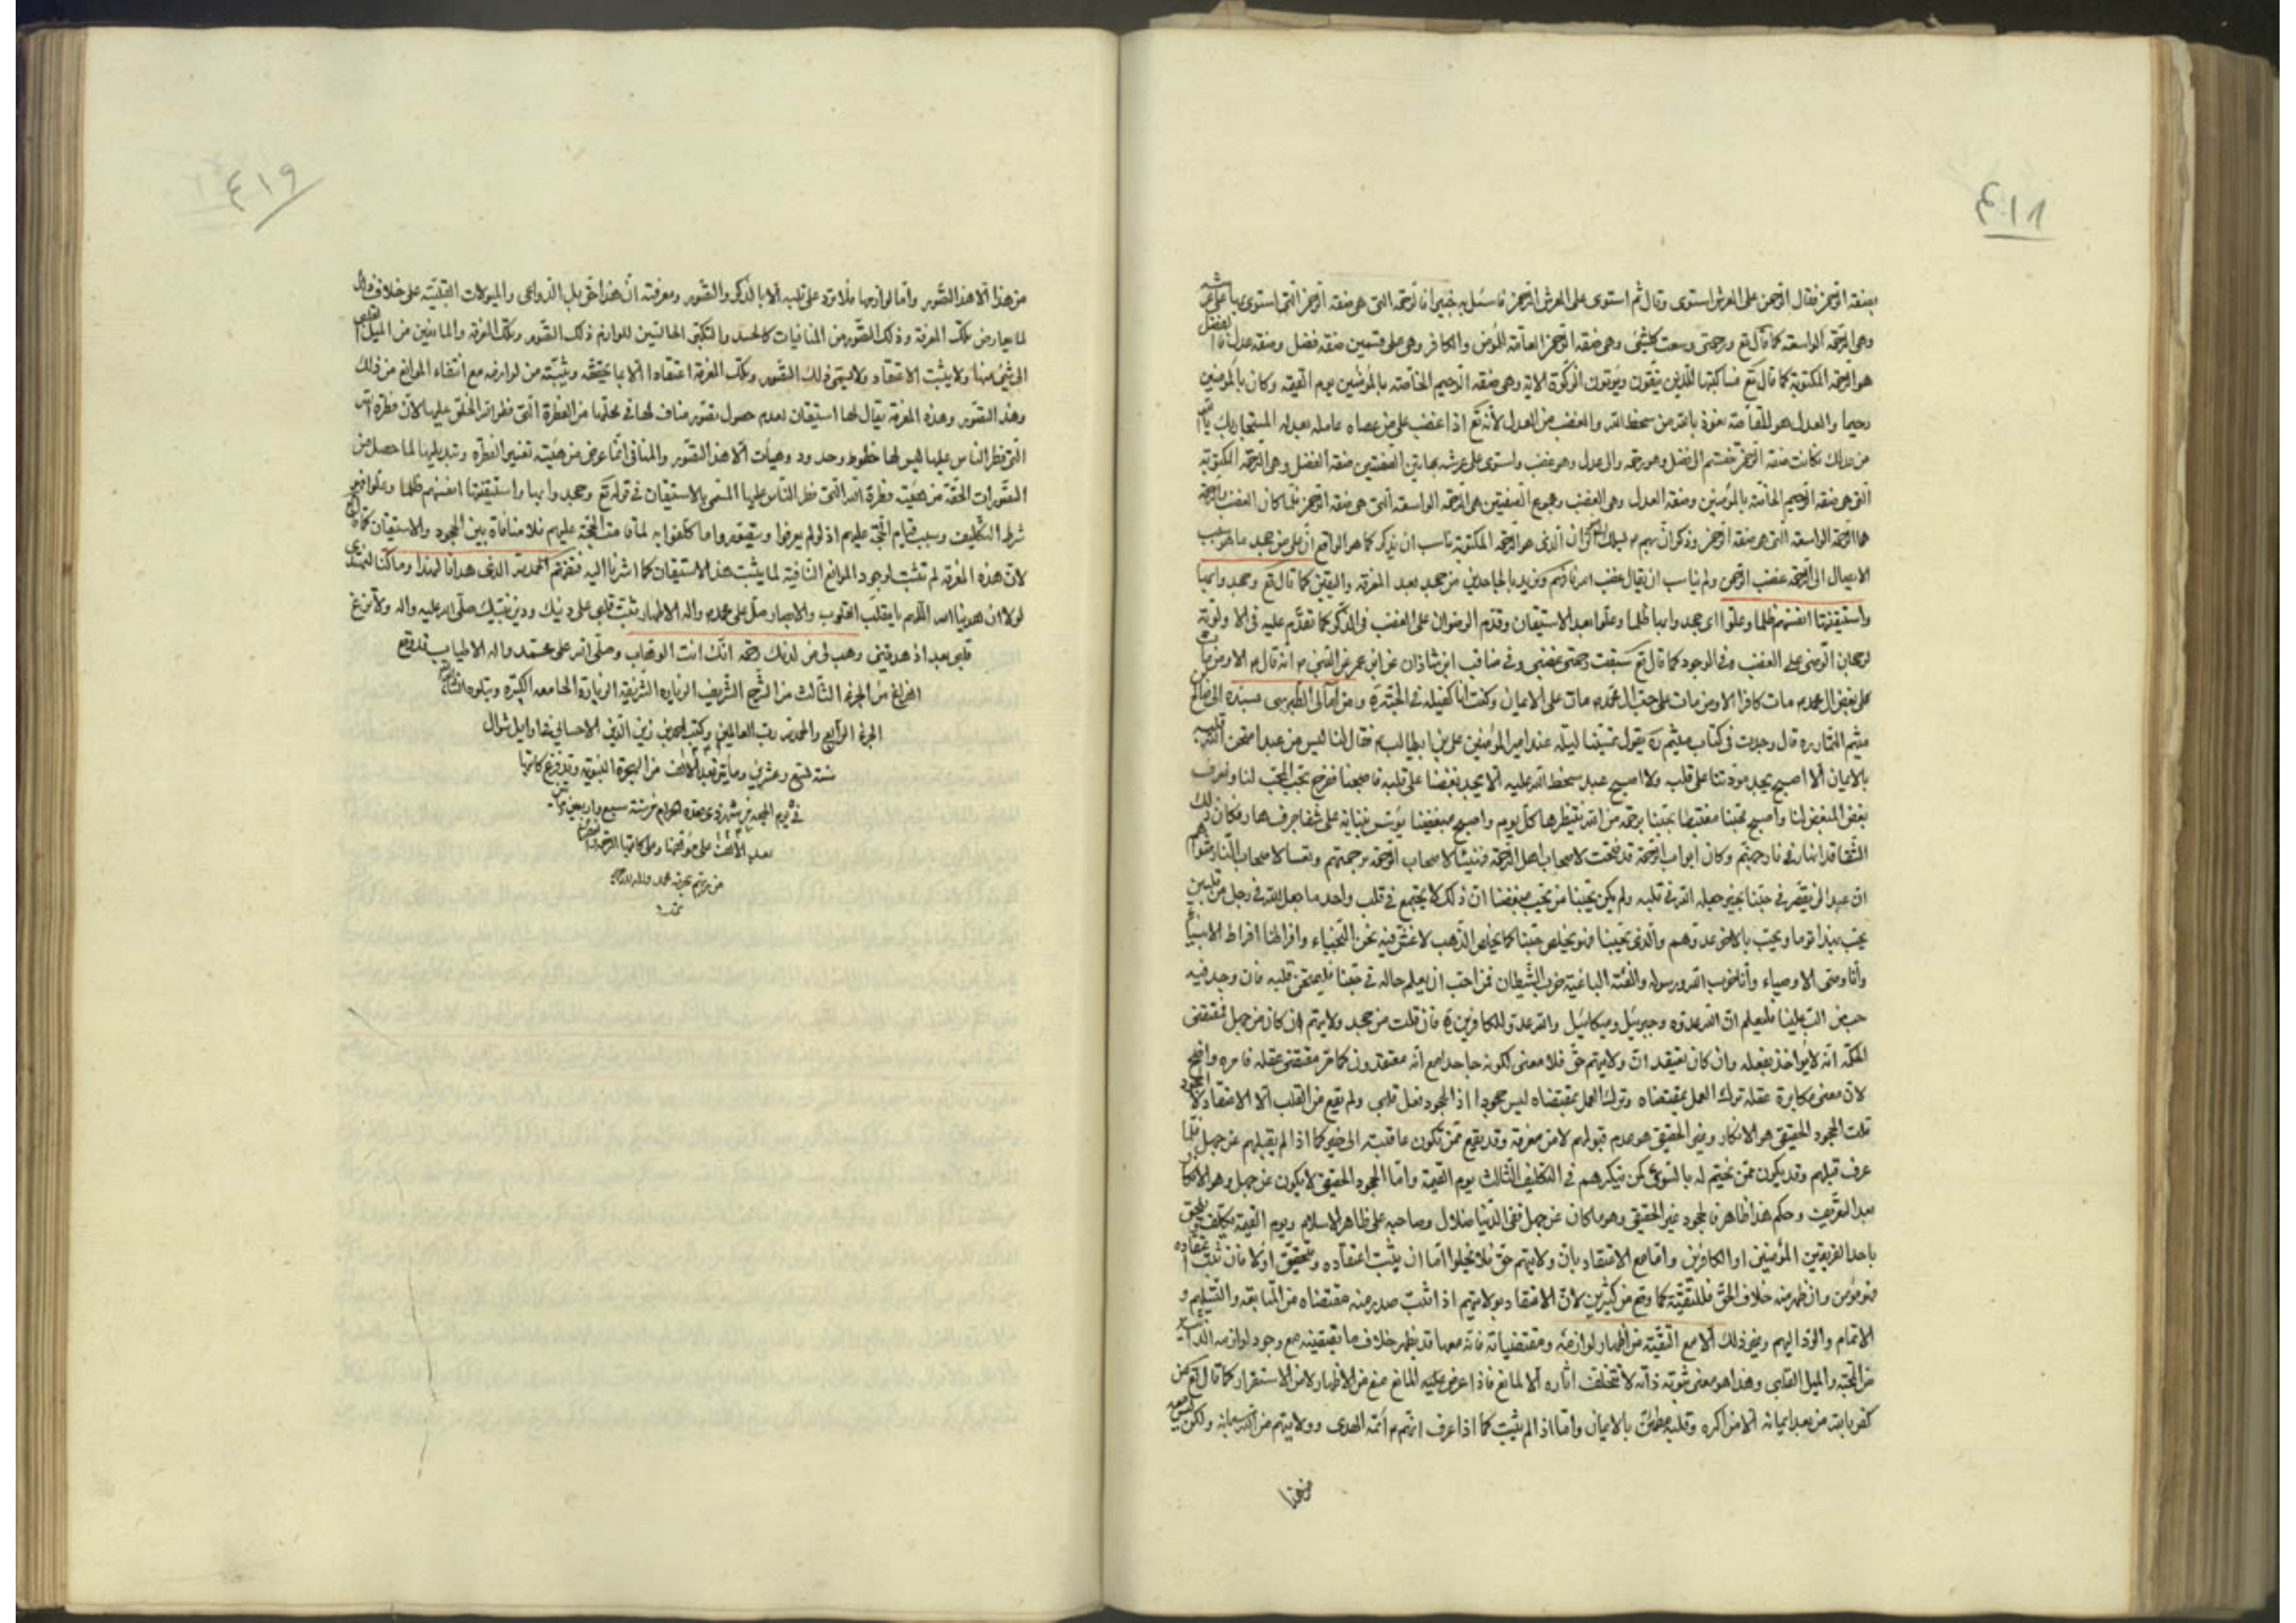 ٤١٨
بصفة الرحمن فقال الرحمن على العرش استوى وقال ثم استوى على العرش الرحمن فاسئل به خبيرا فالرحمة التي هي صفة الرحمن التي استوى بها على عرشه
وهي الرحمة الواسعة كما قال تع ورحمتي وسعت كلشيء وهي صفة الرحمن العامة للمؤمن والكافر وهي على قسمين صفة فضل وصفة عدل فالفضل
هو الرحمة المكتوبة كما قال تع فساكتبها للذين يتقون ويؤتون الزكوة الاية وهي صفة الرحيم الخاصة بالمؤمنين يوم القيمة وكان بالمؤمنين
رحيما والعدل هو للعامة نعوذ بالله من سخط الله والغضب من العدل لأنه تع اذا غضب على من عصاه عامله بعدله المستجار بك يا الله
من عدلك فكانت صفة الرحمن تنقسم الى فضل وهو رحمة والى عدل وهو غضب واستوى على عرشه بهاتين الصفتين صفة الفضل وهي الرحمة المكتوبة
التي هي صفة الرحيم الخاصة بالمؤمنين وصفة العدل وهي الغضب ومجموع الصفتين هي الرحمة الواسعة التي هي صفة الرحمن فلما كان الغضب والرحمة
هما الرحمة الواسعة التي هي صفة الرحمن وذكر ان بهم م يسلك الى الرضوان الذي هو الرحمة المكتوبة ناسب ان يذكر كما هو الواقع ان على من جحد ما هو سبب
الايصال الى الرحمة غضب الرحمن ولم يناسب ان يقال غضب امر نازم ونريد بالجاحدين من جحد بعد المعرفة واليقين كما قال تع وجحدوا بها
واستيقنتها انفسهم ظلما وعلوا اي جحدوا بها ظلما وعلوا بعد الاستيقان وقدم الرضوان على الغضب في الذكر كما تقدم عليه في الاولوية
لرجحان الرضى على الغضب وفي الوجود كما قال تع سبقت رحمتي غضبي وفي مناقب ابن شاذان عن ابن عمر عن النبي ص انه قال الا ومن مات
على بغض ال محمد م مات كافرا الا ومن مات على حب ال محمد م مات على الايمان وكنت انا كفيله في الجنة ومن امالي الطبرسي بسنده الى صالح
ميثم التمار ره قال وجدت في كتاب ميثم ره يقول تمسينا ليلة عند امير المؤمنين علي بن ابيطالب م فقال لنا ليس من عبد امتحن الله قلبه
بالايمان الا اصبح يجد مودتنا على قلبه ولا اصبح عبد سخط الله عليه الا يجد بغضنا على قلبه فاصبحنا نفرح بحب المحب لنا ونعرف
بغض المبغض لنا واصبح محبنا مغتبطا بحبنا برحمة من الله ينتظرها كل يوم واصبح مبغضنا يؤسس بنيانه على شفا جرف هار فكان ذلك
الشفا قد انهار في نار جهنم وكان ابواب الرحمة قد فتحت لاصحاب اهل الرحمة فهنيئا لاصحاب الرحمة برحمتهم وتعسا لاصحاب النار مثواهم
ان عبدا لن يقصر في حبنا لخير جعله الله في قلبه ولم يكن يحبنا من يحب مبغضنا ان ذلك لا يجتمع في قلب واحد ما جعل الله لرجل من قلبين
يحب بهذا قوما ويحب بالاخر عدوهم والذي يحبنا فهو يخلص حبنا كما يخلص الذهب لا غش فيه نحن النجباء وافراطنا افراط الانبياء
وأنا وصى الاوصياء وأنا حزب الله ورسوله والفئة الباغية حزب الشيطان فمن احب ان يعلم حاله في حبنا فليمتحن قلبه فان وجد فيه
حب من الب علينا فليعلم ان الله عدوه وجبرئيل وميكائيل والله عدو للكافرين فان قلت من جحد ولايتهم ان كان من جهل فمقتضى
الحكمة انه لا يؤاخذ بفعله وان كان يعتقد ان ولايتهم حق فلا معنى لكونه جاحدا مع انه معتقد وان كابر مقتضى عقله فامره واضح
لأن معنى مكابرة عقله ترك العمل بمقتضاه وترك العمل بمقتضاه ليس جحودا اذ الجحود فعل قلبي ولم يقع من القلب الا الاعتقاد لا الجحود
قلت الجحود الحقيقي هو الانكار وغير الحقيقي هو عدم قبولهم لا من معرفة وقد يقع ممن تكون عاقبته الى خير كما اذا لم يقبلهم عن جهل فلما
عرف قبلهم وقد يكون ممن يختم له بالسوء كمن ينكرهم في التكليف الثالث يوم القيمة واما الجحود الحقيقي لا يكون عن جهل وهو الانكار
بعد التعريف وحكم هذا ظاهر فالجحود غير الحقيقي وهو ما كان عن جهل ففي الدنيا ضلال وصاحبه على ظاهر الاسلام ويوم القيمة يكلف فيلحق
باحد الفريقين المؤمنين او الكافرين واما مع الاعتقاد بان ولايتهم حق فلا يخلوا اما ان يثبت اعتقاده ويتحقق اولا فان ثبت اعتقاده
فهو مؤمن وان ظهر منه خلاف الحق فللتقية كما وقع من كثيرين لان الاعتقاد بولايتهم اذا اثبت صدر منه مقتضاه من المتابعة والتسليم و
الائتمام والرد اليهم وغير ذلك الا مع التقية من اظهار لوازمه ومقتضياته فانه معها قد يظهر خلاف ما يقتضيه مع وجود لوازمه الذاتية
من المحبة والميل القلبي وهذا هو معنى ثبوته ذاته لا تتخلف اثاره الا لمانع فاذا عرض عليه المانع منع من الاظهار لا من الاستقرار كما قال تع من
كفر بالله من بعد ايمانه الا من اكره وقلبه مطمئن بالايمان واما اذا لم يثبت كما اذا عرف انهم م أئمة الهدى وولايتهم من الله سبحانه ولكن ليس بعد
من هذا
٤١٩
من هذا الا هذا التصور واما لوازمها فلا ترد على قلبه الا بالذكر والتصور ومعرفته ان هذا حق بل الدواعي والميولات القلبية على خلاف ذلك
لما يعارض تلك المعرفة وذلك التصور من المنافيات كالحسد والتكبر الحالتين للوازم ذلك التصور وتلك المعرفة والمانعين من الميل القلبي
الى شيء منها ولا يثبت الاعتقاد ولا يسمى ذلك التصور وتلك المعرفة اعتقادا الا بما يحققه ويثبته من لوازمه مع انتفاء الموانع من ذلك
وهذا التصور وهذه المعرفة يقال لها استيقان لعدم حصول تصور مناف لها في محلها من الفطرة التي فطر الله الخلق عليها لان فطرة الله
التي فطر الناس عليها ليس لها خطوط وحدود وهيأت الا هذا التصور والمنافي انما عرض من هيئة تغيير الفطرة وتبديلها لما حصل من
التصورات الحقة من هيئة فطرة الله التي فطر الناس عليها المسمى بالاستيقان في قوله تع وجحدوا بها واستيقنتها انفسهم ظلما وعلوا فهو
شرط التكليف وسبب قيام الحجة عليهم اذ لو لم يعرفوا ويتصوروا ما كلفوا به لما قامت الحجة عليهم فلا منافاة بين الجحود والاستيقان
لان هذه المعرفة لم تثبت لوجود الموانع النافية لما يثبت هذا الاستيقان كما اشرنا اليه فتفهم الحمد لله الذي هدانا لهذا وما كنا لنهتدي
لولا ان هدينا الله اللهم يا مقلب القلوب والابصار صل على محمد واله الاطهار ثبت قلبي على دينك ودين نبيك صلى الله عليه واله ولا تزغ
قلبي بعد اذ هديتني وهب لي من لدنك رحمة انك انت الوهاب وصلى الله على محمد واله الاطياب قد وقع
الفراغ من الجزء الثالث من الشرح الشريف الزياره الشريفة الزيارة الجامعه الكبيرة ويتلوه انشاء الله
الجزء الرابع والحمد لله رب العالمين وكتب احمد بن زين الدين الاحسائي في اوايل شوال
سنة تسع وعشرين ومأتين بعد الالف من الهجرة النبوية وقد فرغ كاتبها
في يوم الجمعة من شهر ذي قعده الحرام من سنة سبع واربعين ومأتين
بعد الالف على مؤلفها وعلى كاتبها الرحمة
من ربهم بحرمة محمد واله
تمت